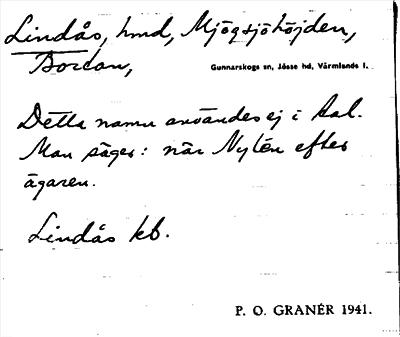 Lindås, hmd, Mjögsjöhöjden,
Bordan,
Gunnarskogs sn, Jösse hd, Värmlands l.
Detta namn användes ej i tal.
Man säger: när Nylén efter
ägaren.
Lindås kb.
P. O. GRANÉR 1941.